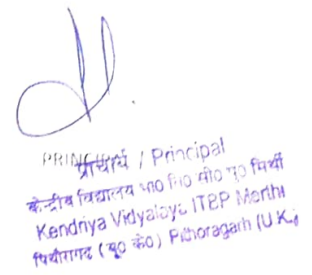 प्राचार्य / Principal
केन्द्रीय विद्यालय भा० ति० सी० पु० मिर्थी
Kendriya Vidyalaya ITBP Mirthi
पिथौरागढ़ (यू० के०) Pithoragarh (U.K.)